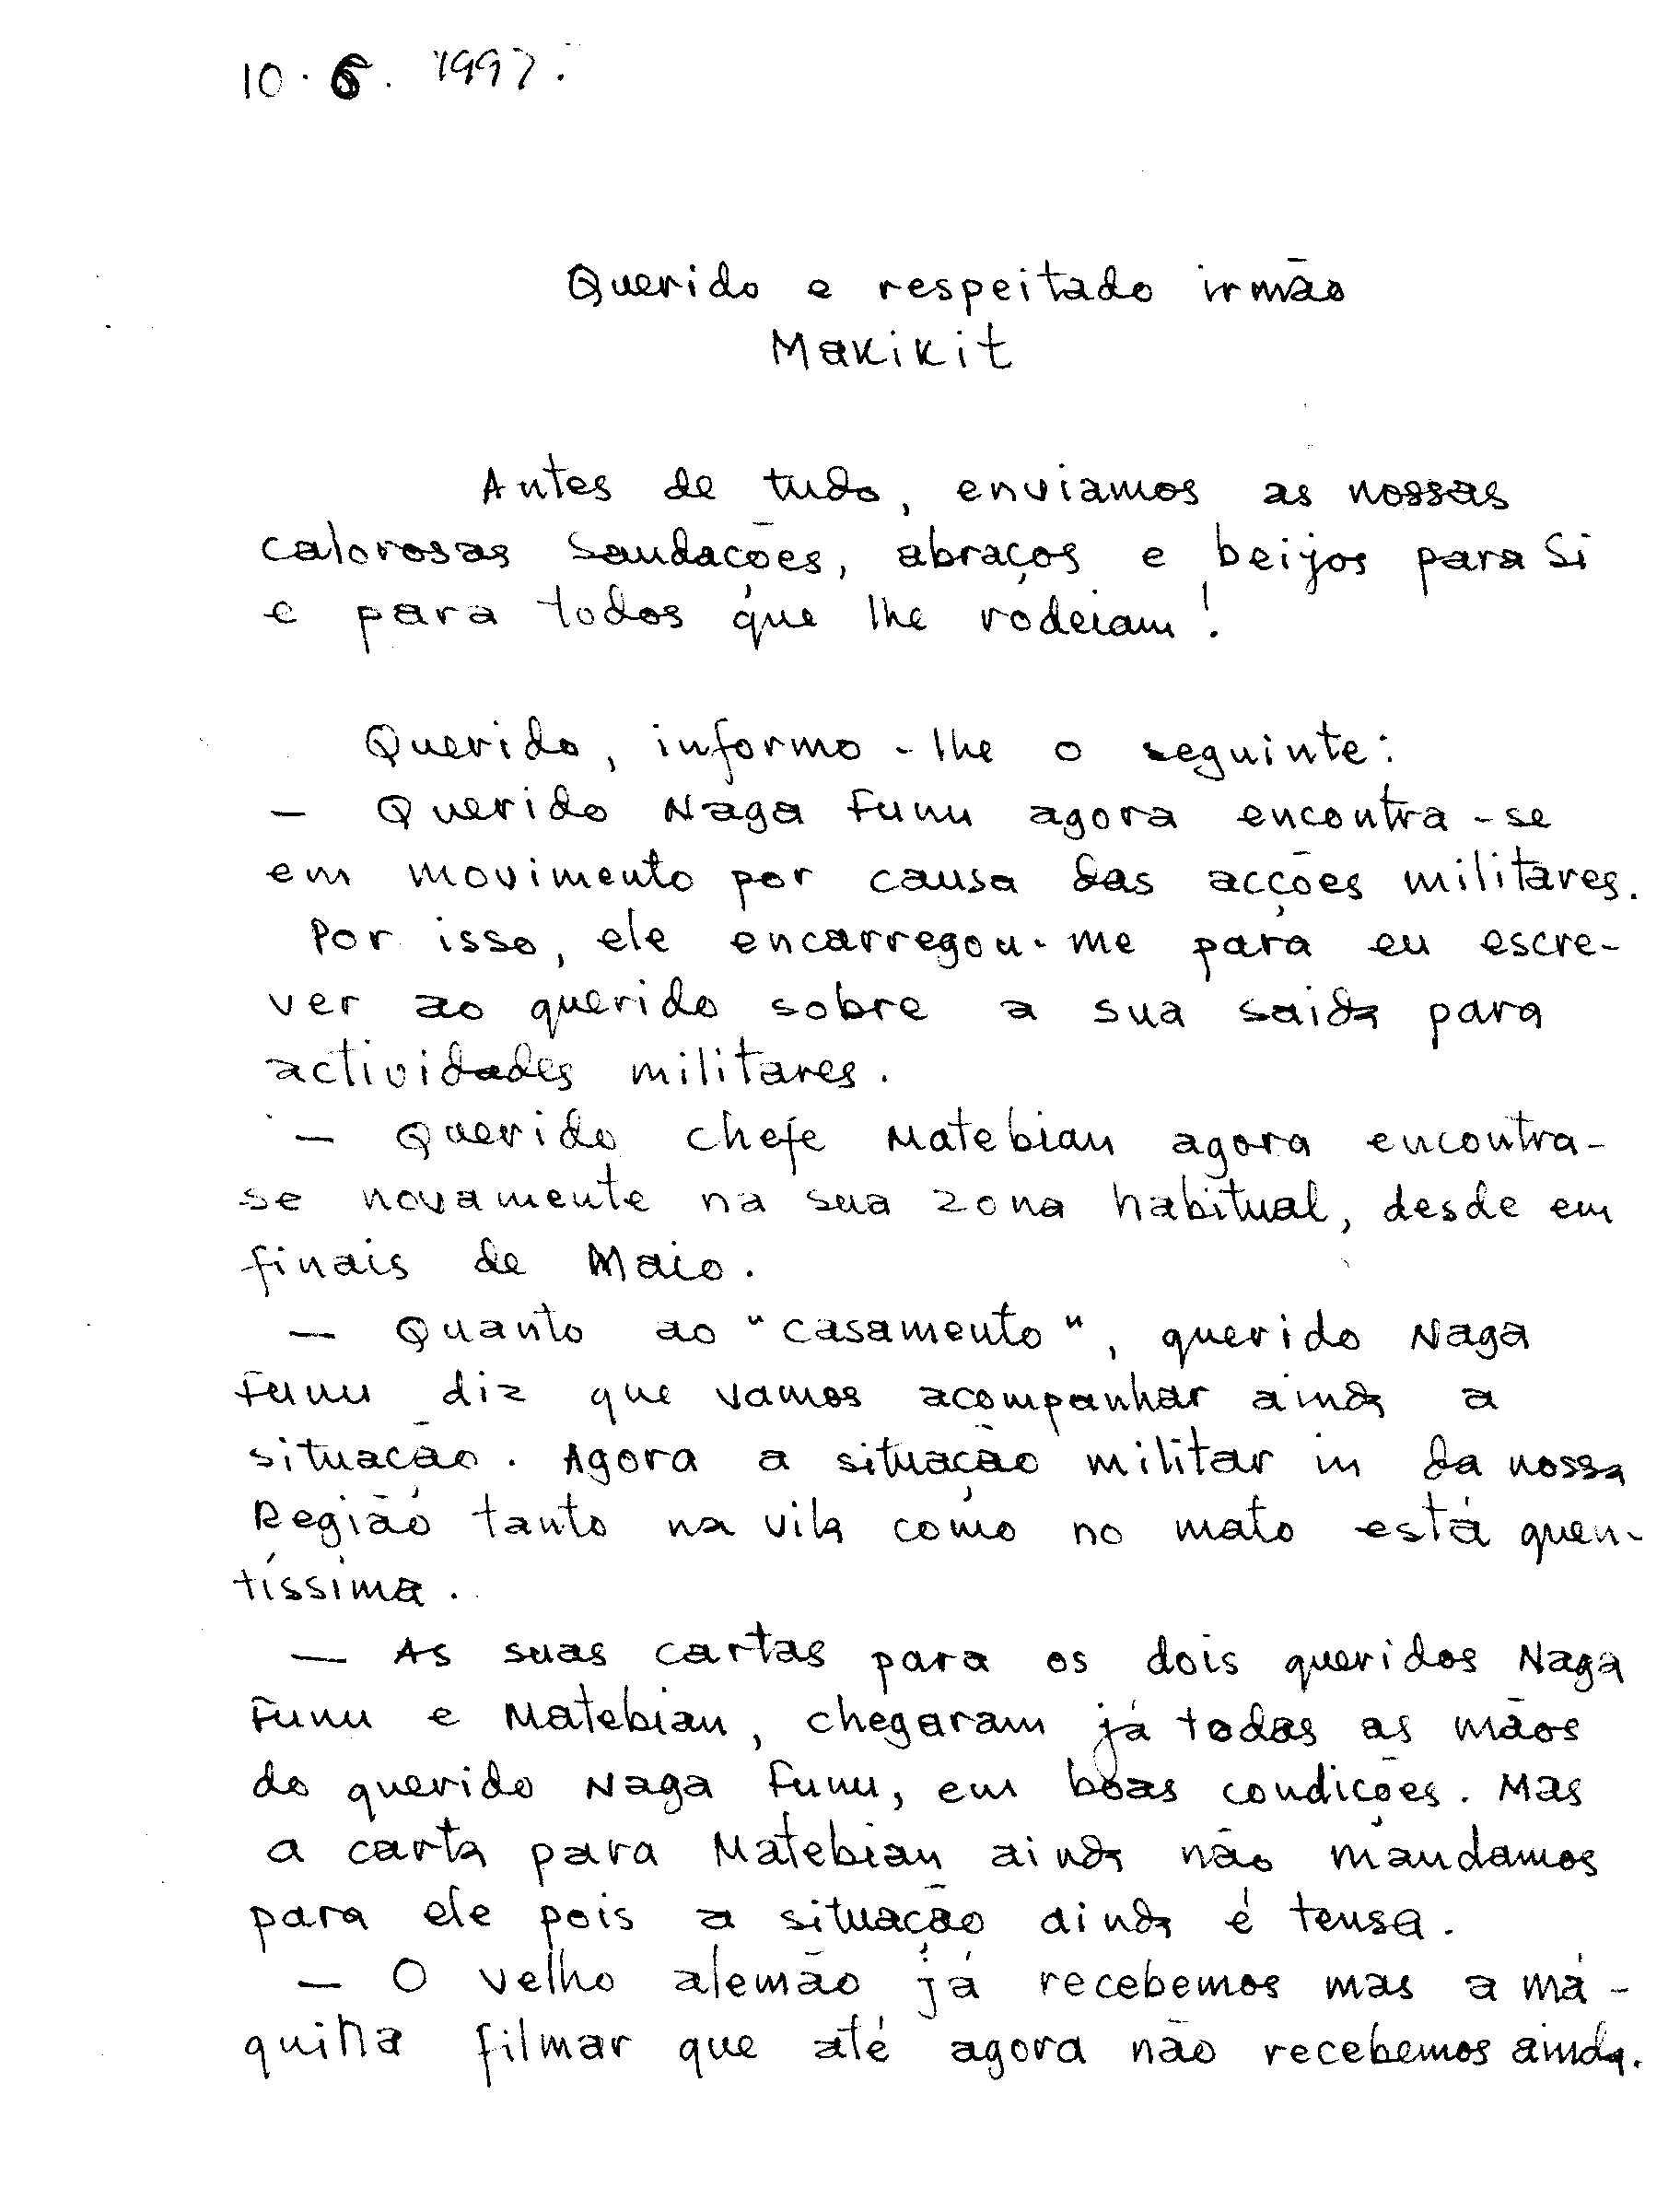 10.6.1997.
Querido e respeitado irmão
Makikit
Antes de tudo, enviamos as nossas
calorosas saudações, abraços e beijos para Si
e para todos que lhe rodeiam!
Querido, informo-lhe o seguinte:
— Querido Naga Funu agora encontra-se
em movimento por causa das acções militares.
Por isso, ele encarregou-me para eu escre-
ver ao querido sobre a sua saida para
actividades militares.
— Querido chefe Matebian agora encontra-
se novamente na sua zona habitual, desde em
finais de Maio.
— Quanto ao "casamento", querido Naga
Funu diz que vamos acompanhar ainda a
situação. Agora a situação militar in da nossa
Região tanto na vila como no mato está quen-
tíssima.
— As suas cartas para os dois queridos Naga
Funu e Matebian, chegaram já todas as mãos
do querido Naga Funu, em boas condições. Mas
a carta para Matebian ainda não mandamos
para ele pois a situação ainda é tensa.
— O velho alemão já recebemos mas a má-
quina filmar que até agora não recebemos ainda.